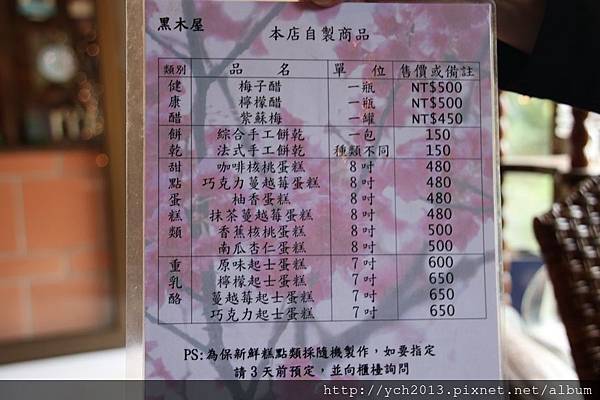 黑木屋
本店自製商品
類別 品 名 單 位 售價或備註
健 梅子醋 一瓶 NT$500
康 檸檬醋 一瓶 NT$500
醋 紫蘇梅 一罐 NT$450
餅 綜合手工餅乾 一包 150
乾 法式手工餅乾 種類不同 150
甜 咖啡核桃蛋糕 8吋 480
點 巧克力蔓越莓蛋糕 8吋 480
蛋 柚香蛋糕 8吋 480
糕 抹茶蔓越莓蛋糕 8吋 480
類 香蕉核桃蛋糕 8吋 500
南瓜杏仁蛋糕 8吋 500
重 原味起士蛋糕 7吋 600
乳 檸檬起士蛋糕 7吋 650
酪 蔓越莓起士蛋糕 7吋 650
巧克力起士蛋糕 7吋 650
PS:為保新鮮糕點類採隨機製作，如要指定
請3天前預定，並向櫃檯詢問
http://ych2013.pixnet.net/album